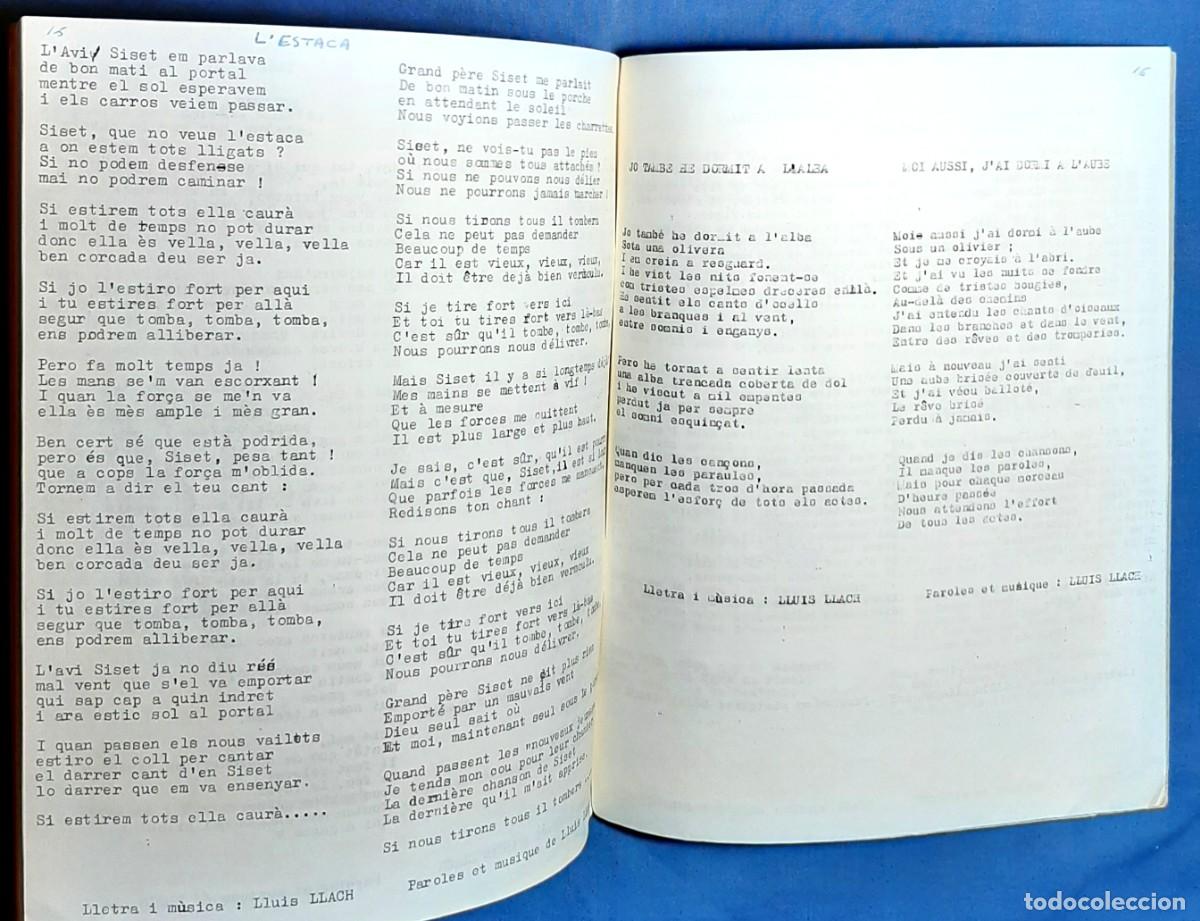 15
L'ESTACA
L'Avi Siset em parlava
de bon mati al portal
mentre el sol esperavem
i els carros veiem passar.
Siset, que no veus l'estaca
a on estem tots lligats ?
Si no podem desfense
mai no podrem caminar !
Si estirem tots ella caurà
i molt de temps no pot durar
donc ella ès vella, vella, vella
ben corcada deu ser ja.
Si jo l'estiro fort per aqui
i tu estires fort per allà
segur que tomba, tomba, tomba,
ens podrem alliberar.
Pero fa molt temps ja !
Les mans se'm van escorxant !
I quan la força se me'n va
ella ès mès ample i mès gran.
Ben cert sé que està podrida,
pero és que, Siset, pesa tant !
que a cops la força m'oblida.
Tornem a dir el teu cant :
Si estirem tots ella caurà
i molt de temps no pot durar
donc ella ès vella, vella, vella
ben corcada deu ser ja.
Si jo l'estiro fort per aqui
i tu estires fort per allà
segur que tomba, tomba, tomba,
ens podrem alliberar.
L'avi Siset ja no diu
mal vent que s'el va emportar
qui sap cap a quin indret
i ara estic sol al portal
I quan passen els nous vailets
estiro el coll per cantar
el darrer cant d'en Siset
lo darrer que em va ensenyar.
Si estirem tots ella caurà.....
Lletra i mùsica : Lluis LLACH
Grand père Siset me parlait
De bon matin sous le porche
en attendant le soleil
Nous voyions passer les charrettes
Siset, ne vois-tu pas le pieu
où nous sommes tous attachés !
Si nous ne pouvons nous délier
Nous ne pourrons jamais marcher !
Si nous tirons tous il tombera
Cela ne peut pas demander
Beaucoup de temps
Car il est vieux, vieux, vieux,
Il doit être déjà bien vermoulu.
Si je tire fort vers ici
Et toi tu tires fort vers là-bas
C'est sûr qu'il tombe, tombe, tombe,
Nous pourrons nous délivrer.
Mais Siset il y a si longtemps déjà
Mes mains se mettent à vif !
Et à mesure
Que les forces me quittent
Il est plus large et plus haut.
Je sais, c'est sûr, qu'il est
Mais c'est que, Siset, il est si
Que parfois les forces me
Redisons ton chant :
Si nous tirons tous il tombera
Cela ne peut pas demander
Beaucoup de temps
Car il est vieux, vieux, vieux
Il doit être déjà bien vermoulu.
Si je tire fort vers ici
Et toi tu tires fort vers là-bas
C'est sûr qu'il tombe, tombe, tombe,
Nous pourrons nous délivrer.
Grand père Siset ne dit plus rien
Emporté par un mauvais vent
Dieu seul sait où
Et moi, maintenant seul sous le
Quand passent les "nouveaux
Je tends mon cou pour leur chanter
La dernière chanson de Siset
La dernière qu'il m'ait apprise.
Si nous tirons tous il tombera
Paroles et musique de Lluis
JO TAMBE HE DORMIT A L'ALBA
Jo també he dormit a l'alba
Sota una olivera
I em creia a resguard.
I he vist les nits fonent-se
com tristes espelmes dreceres enllà.
He sentit els cants d'ocells
a les branques i al vent,
entre somnis i enganys.
Pero he tornat a sentir lenta
una alba trencada coberta de dol
i he viscut a mil empentes
perdut ja per sempre
el somni esquinçat.
Quan dic les cançons,
manquen les paraules,
pero per cada tros d'hora passada
esperem l'esforç de tots els actes.
Lletra i mùsica : LLUIS LLACH
MOI AUSSI, J'AI DORMI A L'AUBE
Mois aussi j'ai dormi à l'aube
Sous un olivier ;
Et je me croyais à l'abri.
Et j'ai vu les nuits se fondre
Comme de tristes bougies,
Au-delà des chemins
J'ai entendu les chants d'oiseaux
Dans les branches et dans le vent,
Entre des rêves et des tromperies.
Mais à nouveau j'ai senti
Une aube brisée couverte de deuil,
Et j'ai vécu balloté,
Le rêve brisé
Perdu à jamais.
Quand je dis les chansons,
Il manque les paroles,
Mais pour chaque morceau
D'heure passée
Nous attendons l'effort
De tous les actes.
Paroles et musique : LLUIS LLACH
todocoleccion